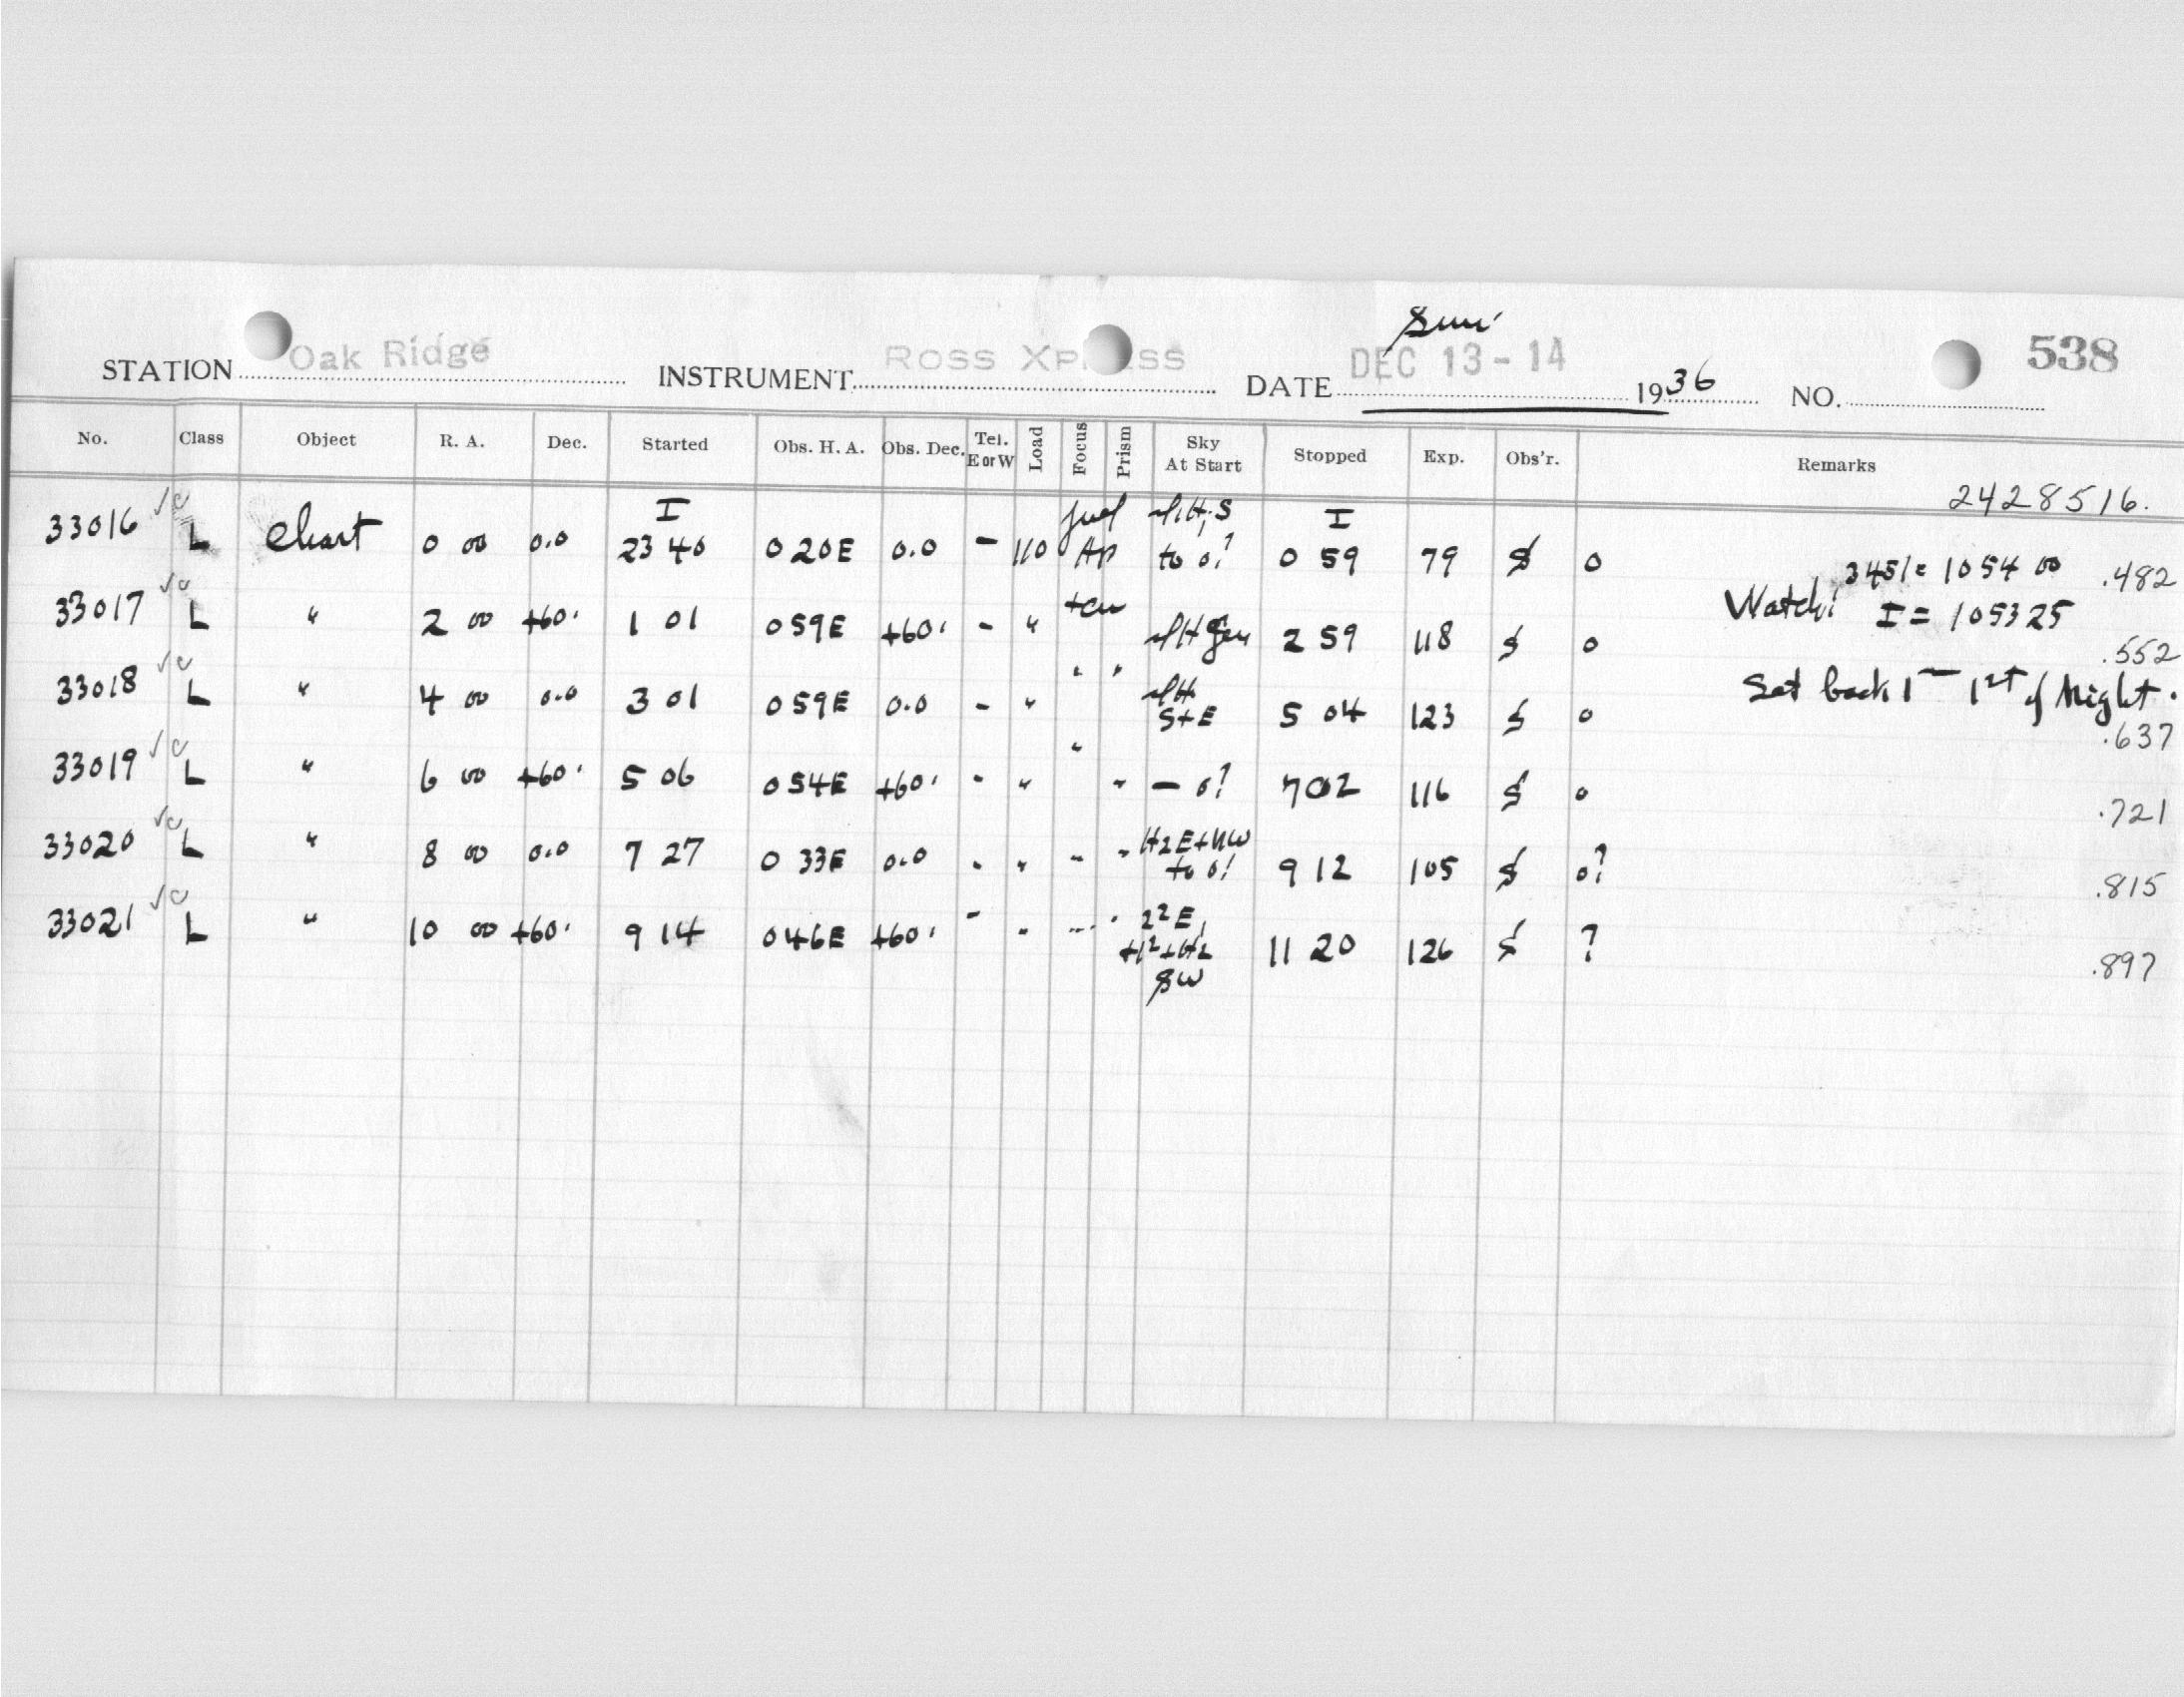 Sun.
STATION Oak Ridge INSTRUMENT ROSS XP SS DATE DEC 13-14 1936 NO. 538
No. Class Object R. A. Dec. Started Obs. H. A. Obs. Dec. Tel. E or W Load Focus Prism Sky At Start Stopped Exp. Obs'r. Remarks
2428516.
33016 L Chart 0 00 0.0 I 23 40 0 20E 0.0 - 110 to 0? I 0 59 79 $ 0 3451= 10 54 00 .482
33017 L " 2 00 +60. 1 01 0 59E +60. - " 2 59 118 $ 0 Watch: I = 10 53 25 .552
33018 L " 4 00 0.0 3 01 0 59E 0.0 - " S+E 5 04 123 $ 0 Set back 1m 1st of Night. .637
33019 L " 6 00 +60. 5 06 0 54E +60. - " " - 0? 7 02 116 $ 0 .721
33020 L " 8 00 0.0 7 27 0 33E 0.0 - " - " H2E+NW to 0? 9 12 105 $ 0? .815
33021 L " 10 00 +60. 9 14 0 46E +60. - " 11 20 126 $ ? .897
SW